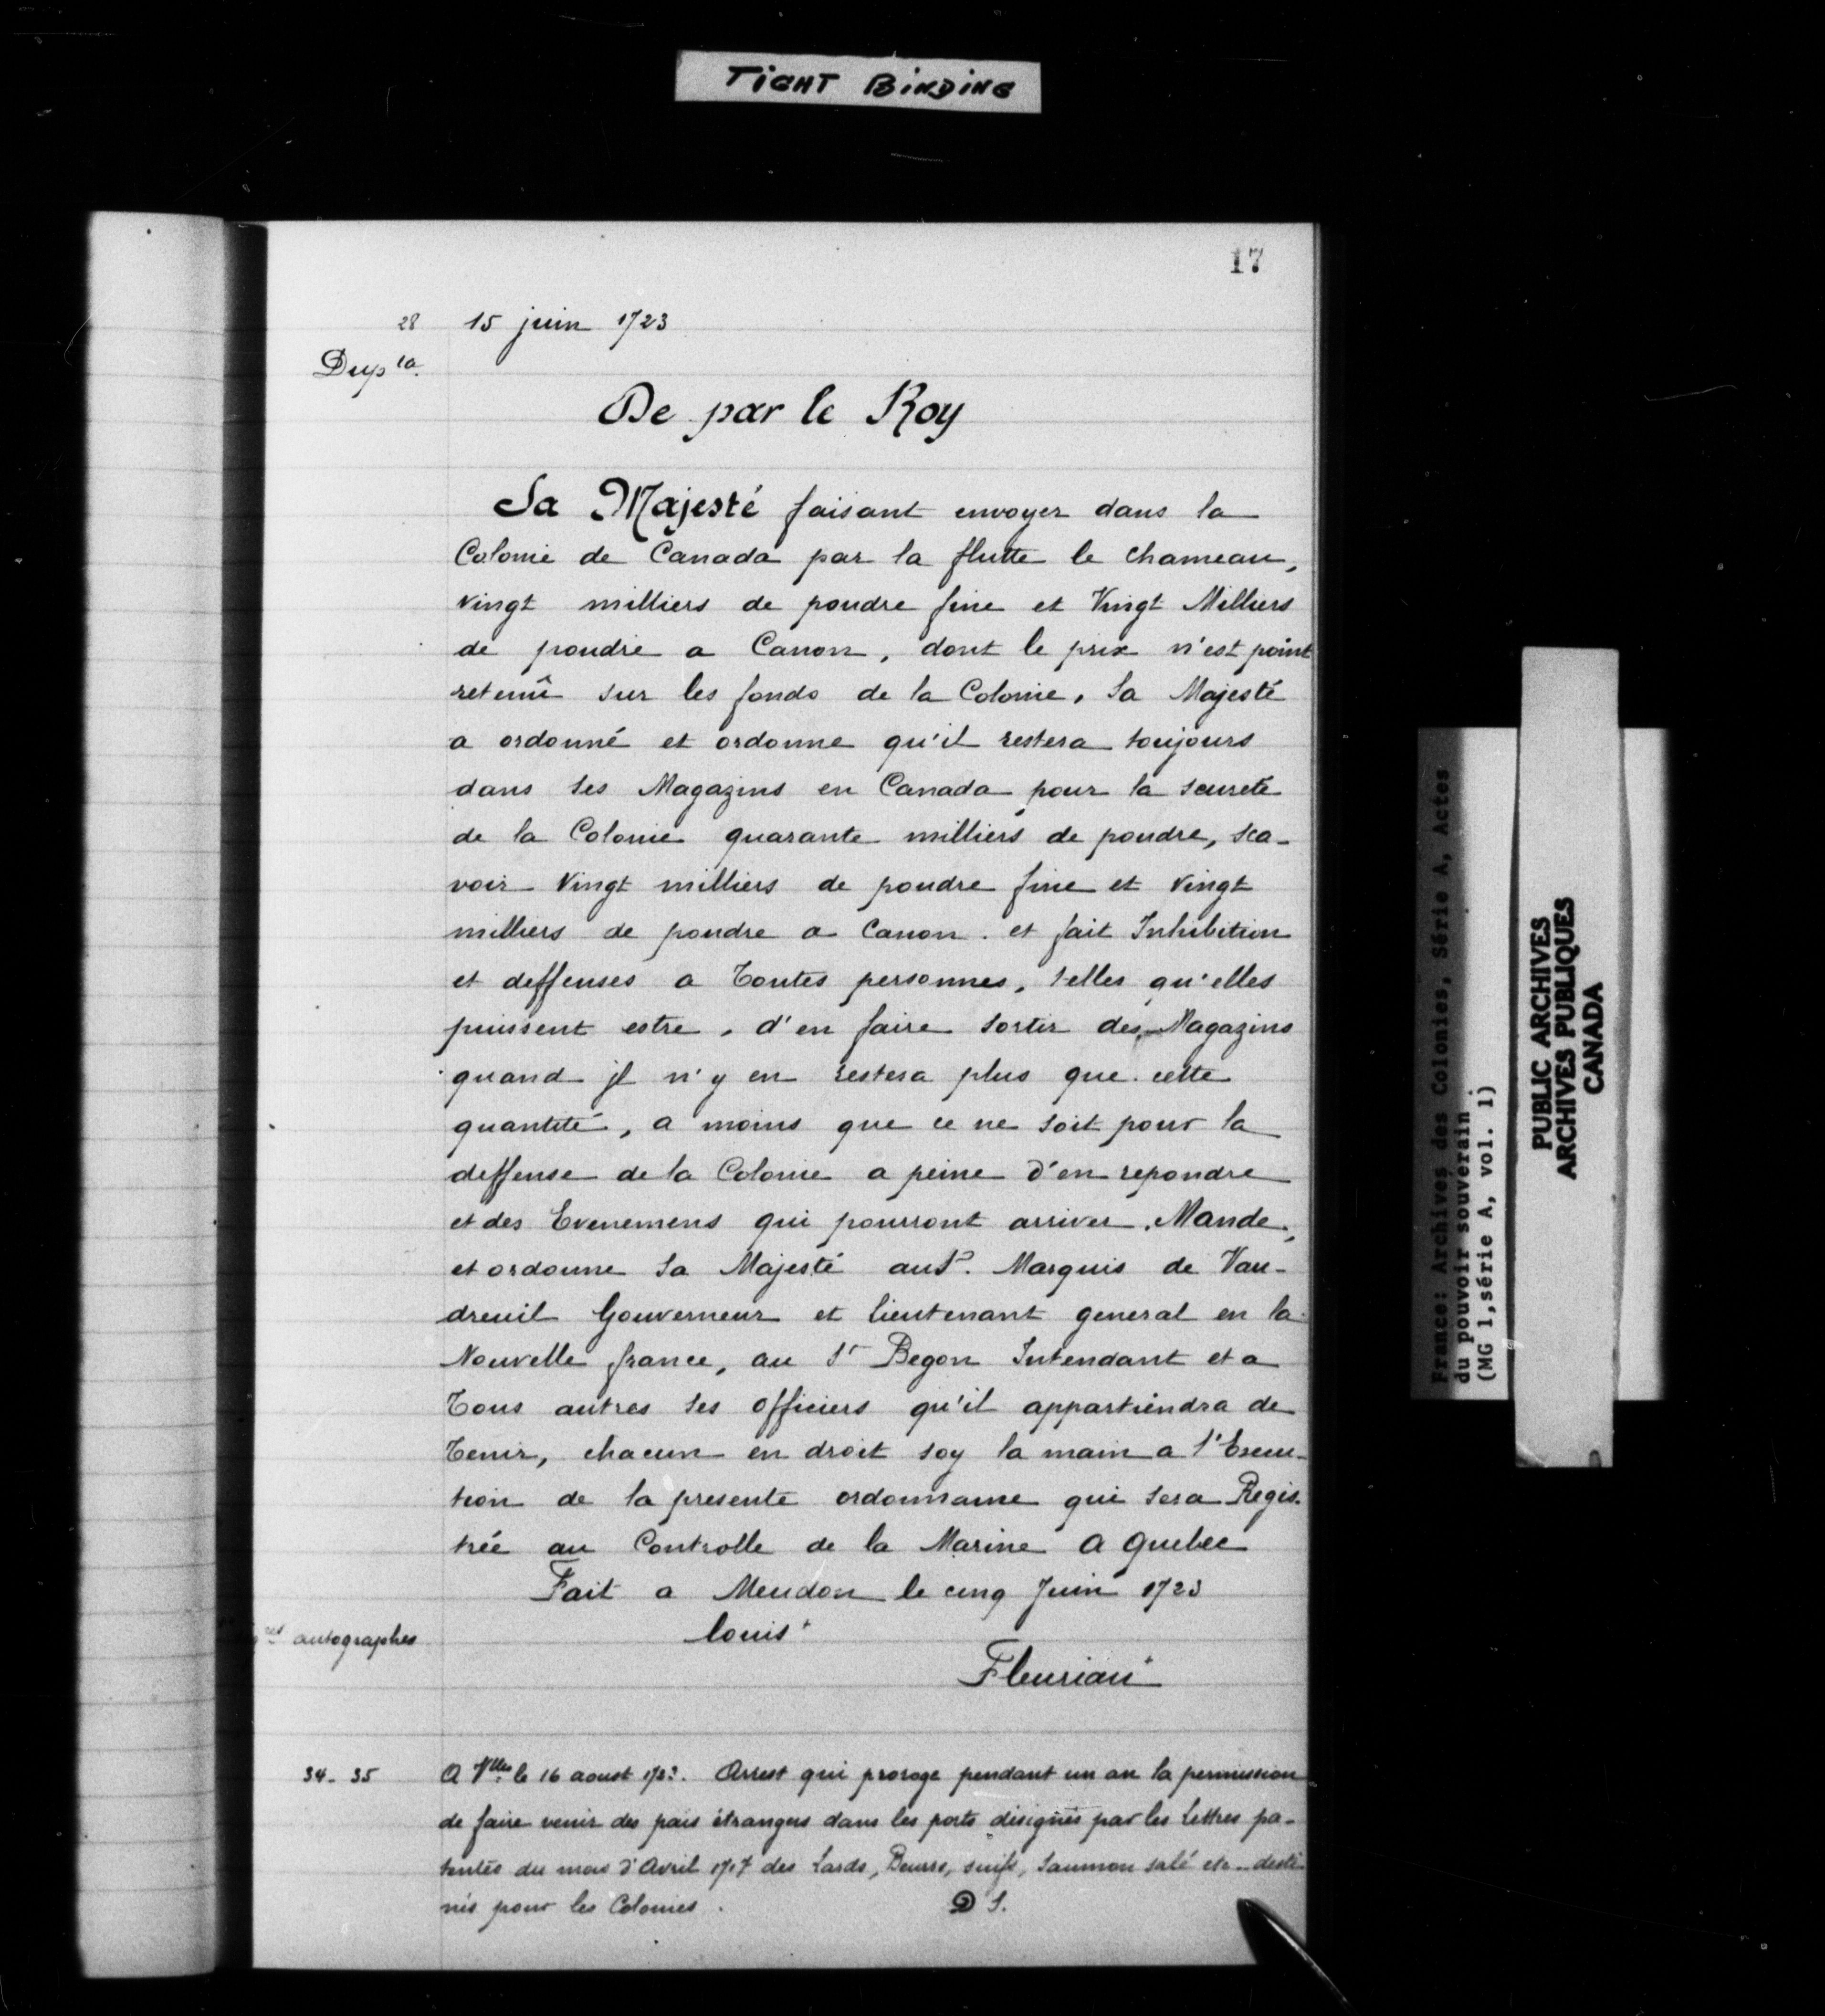 TIGHT BINDING
17
28 15 juin 1723
Dup ta.
De par le Roy
Sa Majesté faisant envoyer dans la
Colonie de Canada par la flutte le Chameau,
vingt milliers de poudre fine et Vingt Milliers
de poudre a Canon, dont le prix n'est point
retenû sur les fonds de la Colonie, Sa Majesté
a ordonné et ordonne qu'il restera toujours
dans ses Magazins en Canada pour la seureté
de la Colonie quarante milliers de poudre, sca-
voir Vingt milliers de poudre fine et vingt
milliers de poudre a Canon. et fait Inhibition
et deffenses a Toutes personnes, telles qu'elles
puissent estre, d'en faire sortir des Magazins
quand jl n'y en restera plus que cette
quantité, a moins que ce ne soit pour la
deffense de la Colonie a peine d'en repondre
et des Evenemens qui pourront arriver. Mande,
et ordonne Sa Majesté au Sr. Marquis de Vau-
dreuil Gouverneur et lieutenant general en la
Nouvelle france, au Sr Begon Intendant et a
Tous autres ses officiers qu'il appartiendra de
Tenir, chacun en droit soy la main a l'Execu-
tion de la presente ordonnance qui sera Regis-
trée au Controlle de la Marine a Quebec
Fait a Meudon le cinq Juin 1723
autographes louis+
Fleuriau+
34-35 A Vlles le 16 aoust 1723. Arrest qui proroge pendant un an la permission
de faire venir des païs étrangers dans les ports désignés par les Lettres pa-
tentes du mois d'Avril 1717 des Lards, Beurre, suifs, Saumon salé etc. desti-
nés pour les Colonies. S.
France: Archives des Colonies, Série A, Actes
du pouvoir souverain
(MG 1,série A, vol. 1)
PUBLIC ARCHIVES
ARCHIVES PUBLIQUES
CANADA